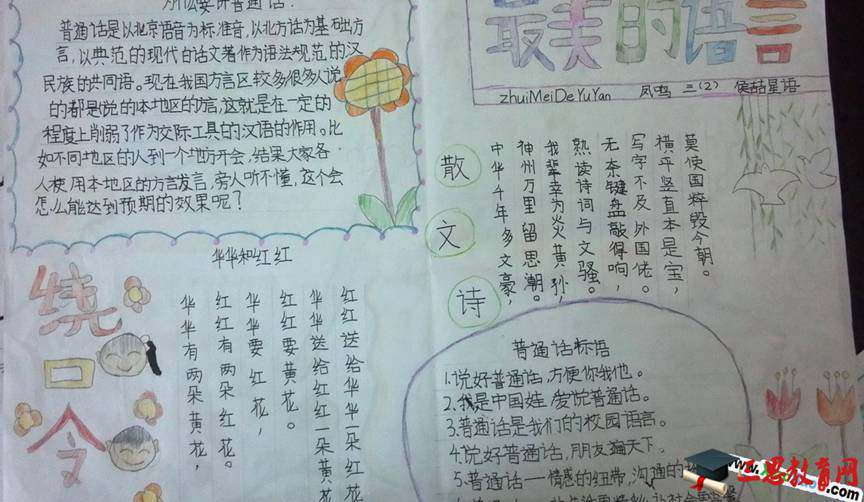 为什么要讲普通话?
普通话是以北京语音为标准音,以北方话为基础方
言,以典范的现代白话文著作为语法规范的汉
民族的共同语。现在我国方言区较多很多人说
的都是说的本地区的方言,这就是在一定的
程度上削弱了作为交际工具的汉语的作用。比
如不同地区的人到一个地方开会,结果大家各
人使用本地区的方言发言,旁人听不懂,这个会
怎么能达到预期的效果呢?
最美的语言
zhuiMeiDeYuYan 凤鸣 三(2) 侯喆星语
散文诗
中华千年多文豪,
神州万里留思潮。
我辈幸为炎黄孙,
熟读诗词与文骚。
无奈键盘敲得响,
写字不及外国佬。
横平竖直本是宝,
莫使国粹毁今朝。
绕口令
华华和红红
华华有两朵黄花,
红红有两朵红花。
华华要红花,
红红要黄花。
华华送给红红一朵黄花
红红送给华华一朵红花
普通话标语
1.说好普通话,方便你我他。
2.我是中国娃,爱说普通话。
3.普通话是我们的校园语言。
4.说好普通话,朋友遍天下。
5.普通话——情感的纽带,沟通的
三思教育网